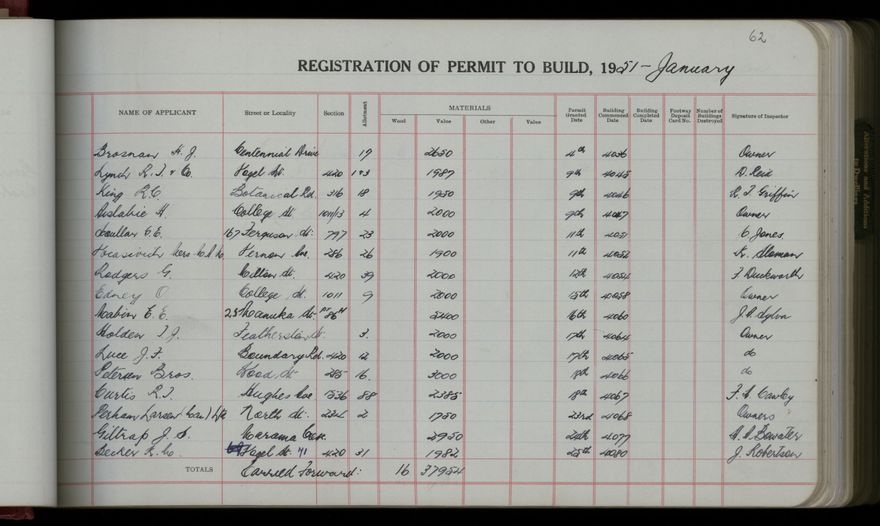 62
REGISTRATION OF PERMIT TO BUILD, 1951 - January
NAME OF APPLICANT Street or Locality Section Allotment MATERIALS Permit Granted Date Building Commenced Date Building Completed Date Footway Deposit Card No. Number of Buildings Destroyed Signature of Inspector
Wood Value Other Value
Brosnan H. J. Centennial Drive 19 2650 4th 4036 Owner
Lynch R. J. & Co. Hazel St. 420 1987 9th 4045 D. Reid
King R. C. Botanical Rd. 316 18 1950 9th 4046 R. J. Griffin
H. College St. 1011/13 4 2000 9th 4047 Owner
C. E. 167 Ferguson St. 797 23 2000 11th 4051 C. Jones
Vernon Ave. 286 26 1900 11th 4052 K. Sloman
Rodgers G. Milton St. 420 39 2000 12th 4054 F. Duckworth
Edney O. College St. 1011 9 2000 15th 4058 Owner
Mabin E. E. 25 Manuka St. 86 2400 16th 4060 J. A. Sylva
Holden T. J. Featherston St. 3. 2000 17th 4064 Owner
Luce J. F. Boundary Rd. 420 12 2000 17th 4065 do
Petersen Bros. Wood St. 285 16. 3000 18th 4066 do
Curtis R. J. Hughes Ave 1536 88 2385 18th 4067 F. A. Cawley
North St. 2 1750 23rd 4068 Owners
Giltrap J. S. Marama Cres. 2950 24th 4077 Bowater
Becker R. Hazel St. 71 420 31 1982 25th 4080 J. Robertson
TOTALS Carried Forward: 16 37954
Alterations and Additions to Dwellings